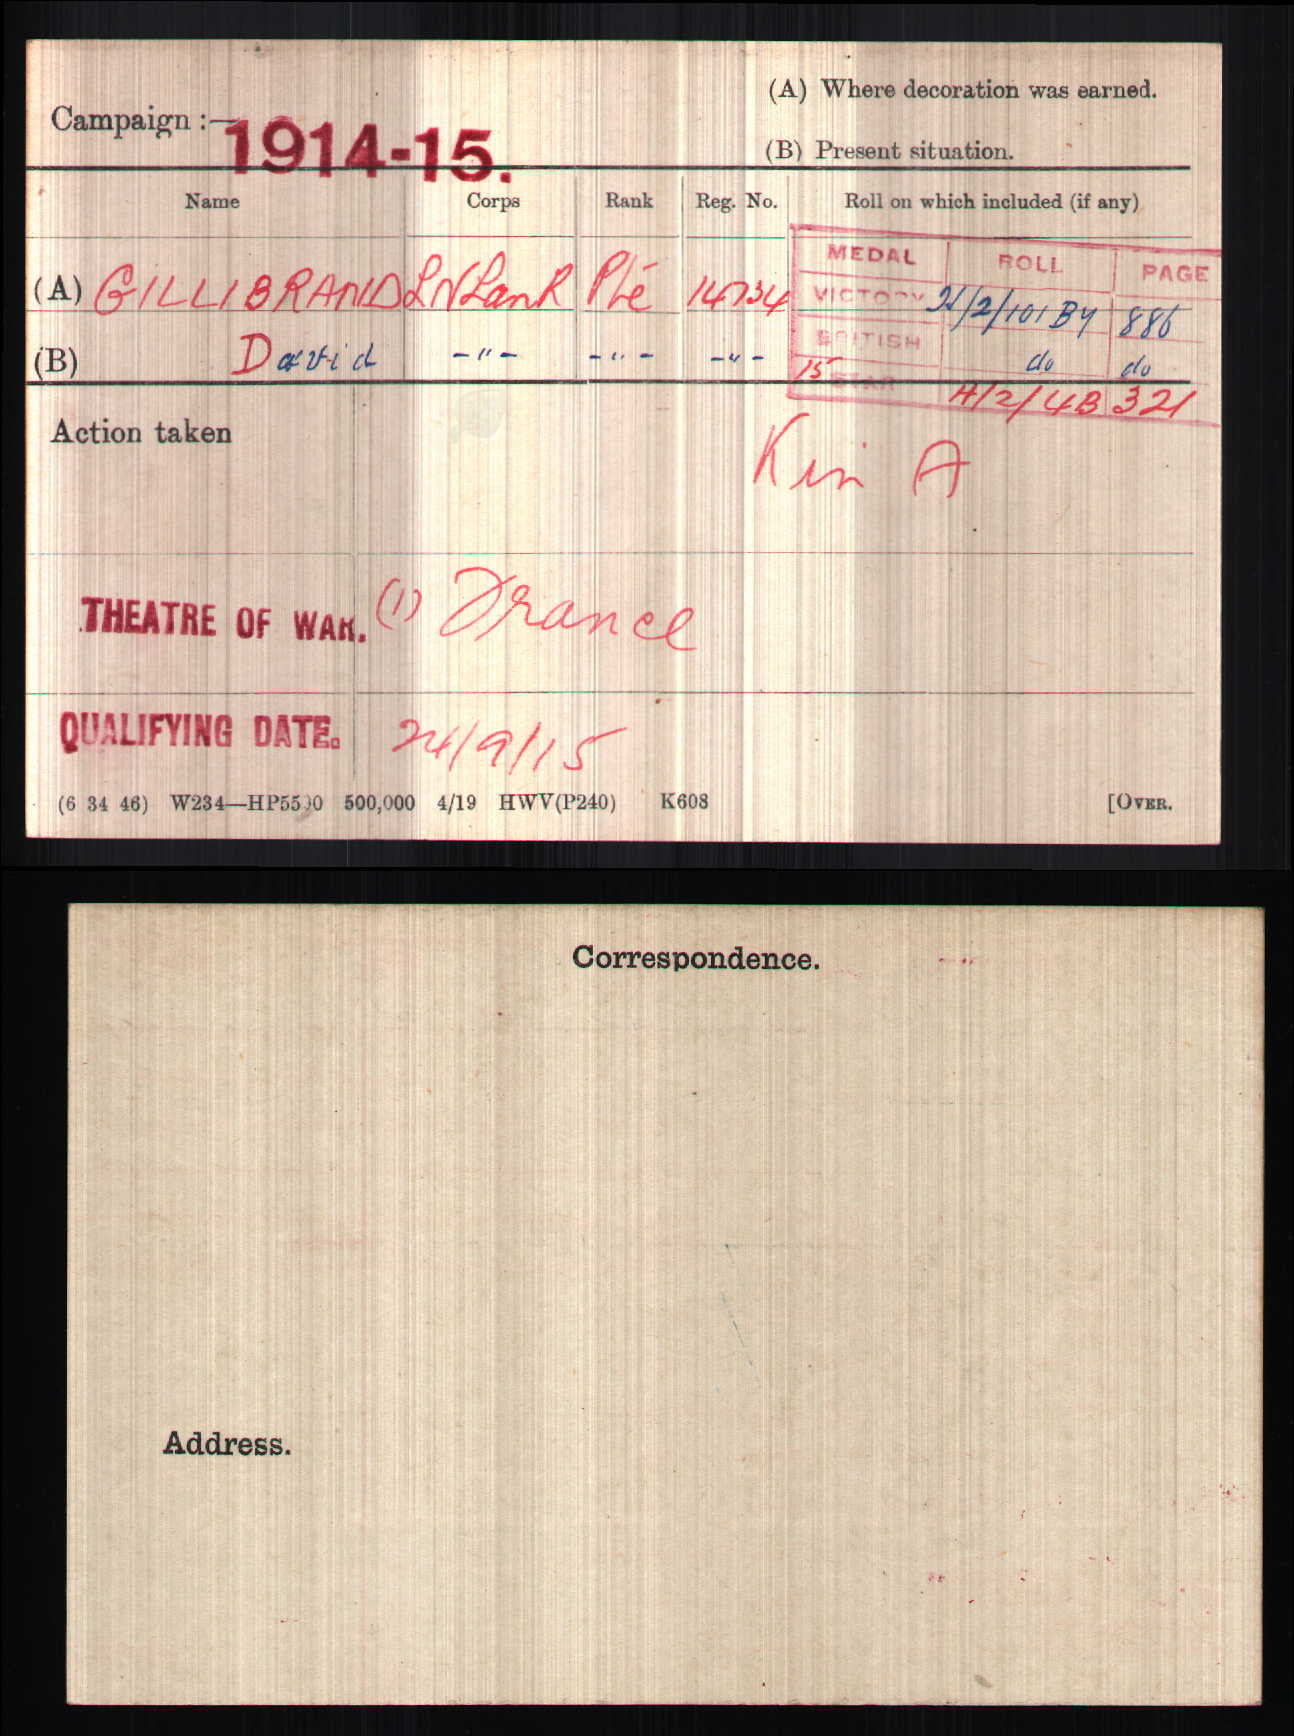 Campaign :—
1914-15.
(A) Where decoration was earned.
(B) Present situation.
Name Corps Rank Reg. No. Roll on which included (if any)
MEDAL ROLL PAGE
(A) GILLIBRAND LN Lan R Pte 14734 VICTORY 2/101 B4 886
(B) David -"- -"- -"- BRITISH do do
15 STAR H/2/4B 321
Action taken
Kin A
THEATRE OF WAR. (1) France
QUALIFYING DATE. 24/9/15
(6 34 46) W234—HP5590 500,000 4/19 HWV(P240) K608 [OVER.
Correspondence.
Address.